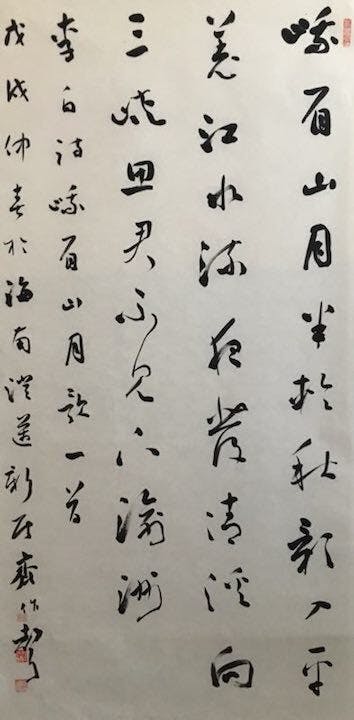 峨眉山月半轮秋影入平
羌江水流夜发清溪向
三峡思君不见下渝州
李白诗峨眉山月歌一首
戊戌仲春於海南澄迈新居斋作